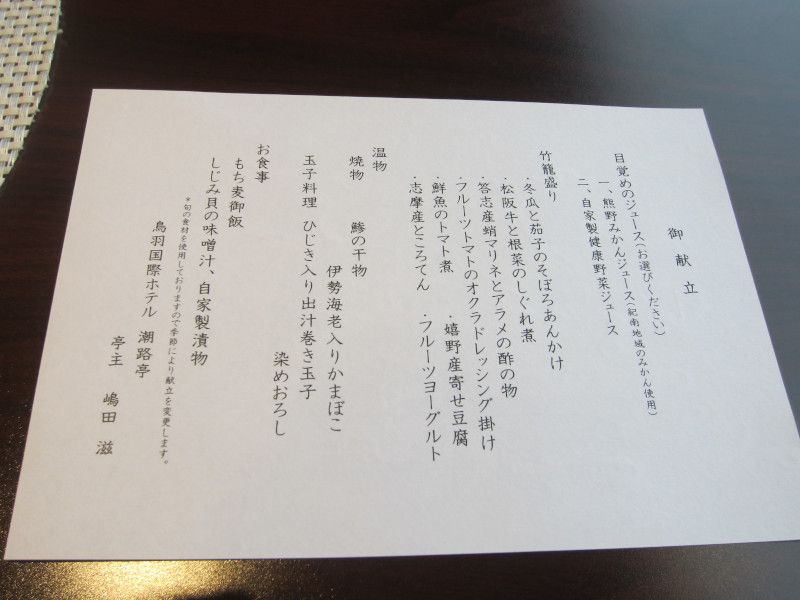 御献立
目覚めのジュース(お選びください)
一、熊野みかんジュース(紀南地域のみかん使用)
二、自家製健康野菜ジュース
竹籠盛り
・冬瓜と茄子のそぼろあんかけ
・松阪牛と根菜のしぐれ煮
・答志産蛸マリネとアラメの酢の物
・フルーツトマトのオクラドレッシング掛け
・鮮魚のトマト煮 ・嬉野産寄せ豆腐
・志摩産ところてん ・フルーツヨーグルト
温物
焼物 鯵の干物
伊勢海老入りかまぼこ
玉子料理 ひじき入り出汁巻き玉子
染めおろし
お食事
もち麦御飯
しじみ貝の味噌汁、自家製漬物
*旬の食材を使用しておりますので季節により献立を変更します。
鳥羽国際ホテル 潮路亭
亭主 嶋田 滋